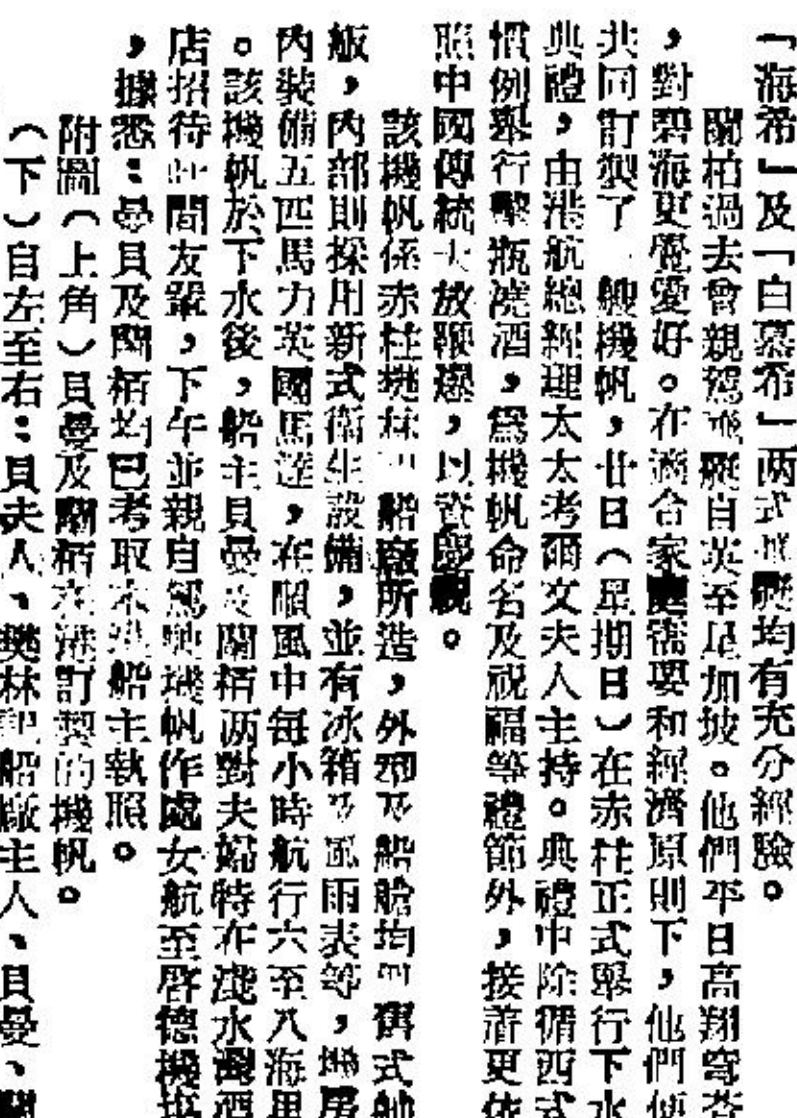 「海希」及「白慕希」两式機硬均有充分經驗。
關柏過去曾親駕飛艇自英至星加坡。他們平日高翔穹蒼
，對碧海更覺愛好。在適合家庭需要和經濟原則下，他們便
共同訂製了一艘機帆，廿日（星期日）在赤柱正式舉行下水
典禮，由港航總經理太太考爾文夫人主持。典禮中除循西式
慣例舉行擊瓶澆酒，爲機帆命名及祝福等禮節外，接着更依
照中國傳統大放鞭爆，以資慶祝。
該機帆係赤柱樊林記船廠所造，外型及船艙均舊式舢
舨，內部則採用新式衞生設備，並有冰箱及風雨表等，機房
內裝備五匹馬力英國馬達，在順風中每小時航行六至八海里
。該機帆於下水後，船主貝曼及關栢两對夫婦特在淺水灣酒
店招待 間友輩，下午並親自駕駛機帆作處女航至啓德機塲
，據悉：曼貝及關栢均已考取本港船主執照。
附圖（上角）貝曼及關栢在港訂製的機帆。
（下）自左至右：貝夫人、樊林記船廠主人、貝曼、關